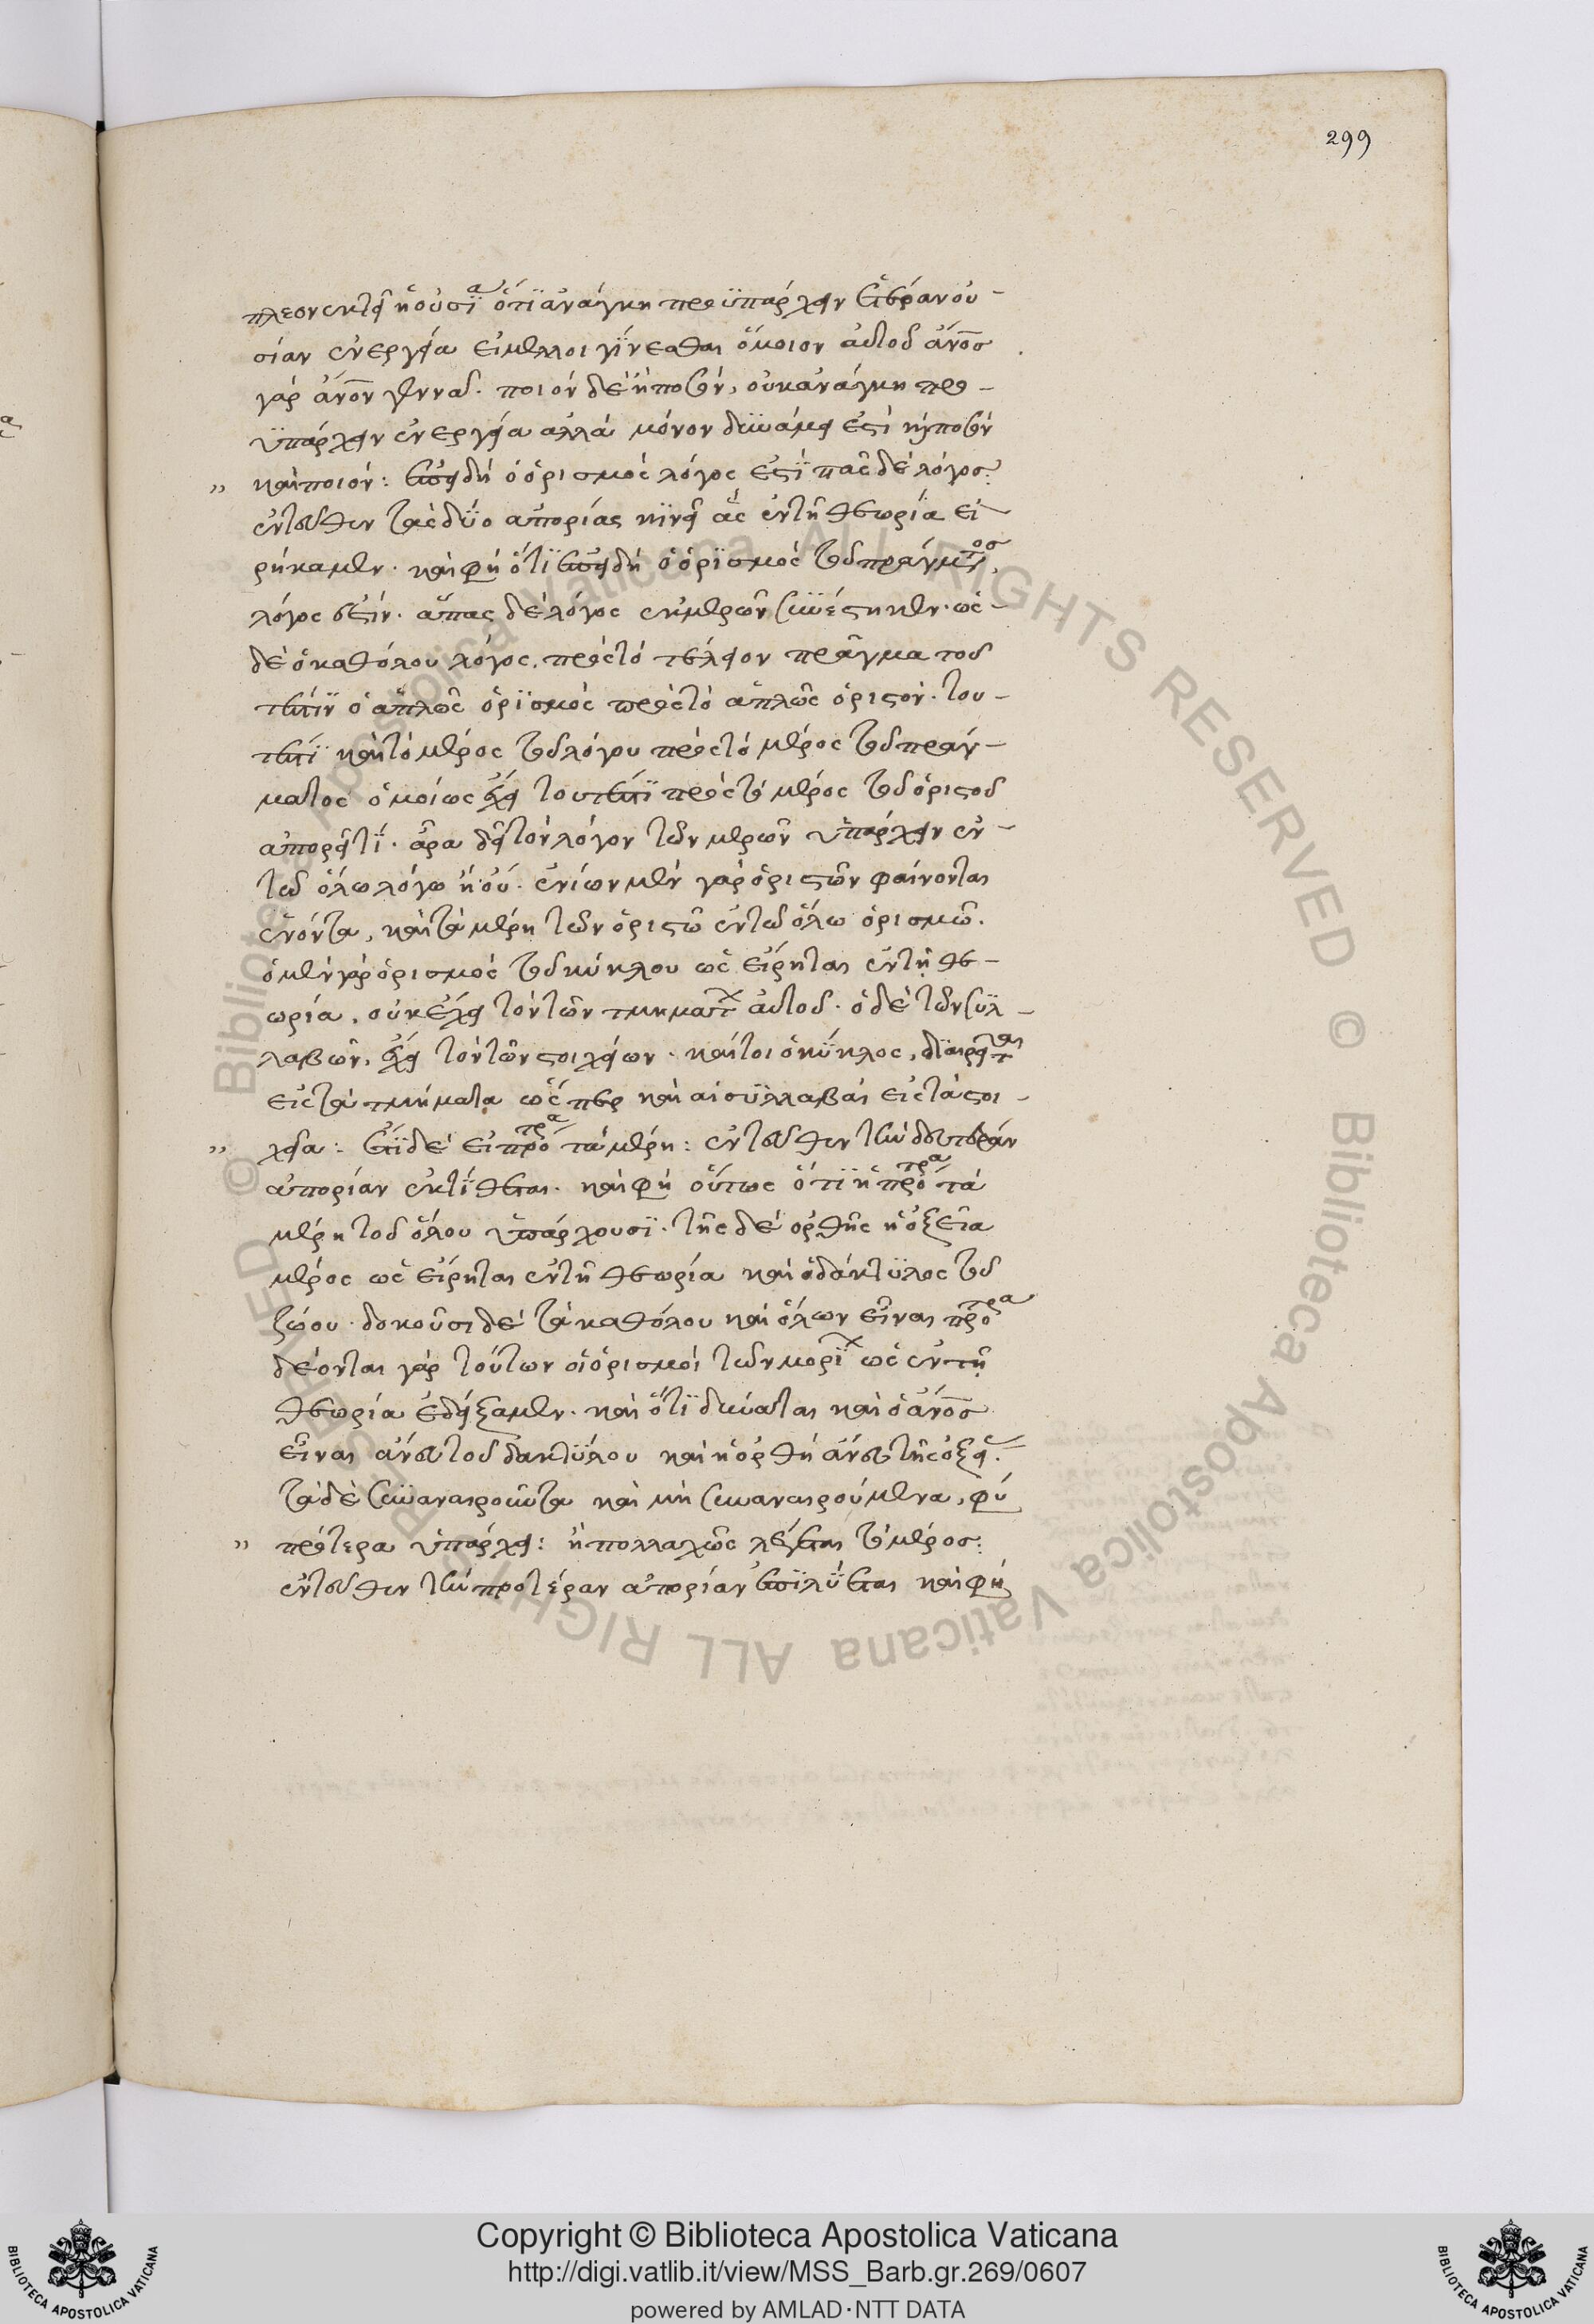 299
πλεονεκτεῖ ἡ οὐσία ὅτι ἀνάγκη προϋπάρχειν ἑτέραν οὐ-
σίαν ἐνεργείᾳ εἰ μέλλοι γίνεσθαι ὅμοιον αὐτοῦ ἄνος
γὰρ ἄνον γεννᾶ. ποιὸν δὲ ἢ ποσόν, οὐκ ἀνάγκη προ-
ϋπάρχειν ἐνεργείᾳ ἀλλὰ μόνον δυνάμει ἐστὶ καὶ ποσὸν
καὶ ποιόν: ἐπεὶ δὴ ὁ ὁρισμὸς λόγος ἐστὶ πᾶς δὲ λόγος:
ἐντεῦθεν τὰς δύο ἀπορίας κινεῖ ἃς ἐν τῇ θεωρίᾳ εἰ-
ρήκαμεν. καὶ φη ὅτι ἐπειδὴ ὁ ὁρισμὸς τοῦ πράγματος
λόγος ἐστίν. ἅπας δὲ λόγος ἐκ μερῶν συνέστηκεν. ὡς
δὲ ὁ καθόλου λόγος, πρὸς τὸ τέλειον πρᾶγμα τοῦ
τέστιν ὁ ἁπλῶς ὁρισμὸς πρὸς τὸ ἁπλῶς ὁριστόν. του-
τέστι καὶ τὸ μέρος τοῦ λόγου πρὸς τὸ μέρος τοῦ πράγ-
ματος ὁμοίως ἔχει τουτέστι πρὸς τὸ μέρος τοῦ ὁριστοῦ
ἀπορεῖται. ἆρα δεῖ τὸν λόγον τῶν μερῶν ὑπάρχειν ἐν
τῶ ὅλω λόγω ἢ οὔ. ἐνίων μὲν γὰρ ὁριστῶν φαίνονται
ἐνόντα, καὶ τὰ μέρη τῶν ὁριστῶ ἐν τῶ ὅλω ὁρισμῶ.
ὁ μὲν γὰρ ὁρισμὸς τοῦ κύκλου ὡς εἴρηται ἐν τῇ θε-
ωρία, οὐκ ἔχει τὸν τῶν τμημάτων αὐτοῦ. ὁ δὲ τῶν συλ-
λαβῶν, ἔχει τὸν τῶν στοιχείων. καίτοι ὁ κύκλος, διαιρεῖται
εἰς τὰ τμήματα ὥσπερ καὶ αἱ συλλαβαὶ εἰς τὰ στοι-
χεῖα: ἔτι δὲ εἰ πρότερα τὰ μέρη: ἐντεῦθεν τὴν δευτέραν
ἀπορίαν ἐκτίθεται. καὶ φη οὕτως ὅτι ἢ πρότερα τὰ
μέρη τοῦ ὅλου ὑπάρχουσι. τῆς δὲ ὀρθῆς ἡ ὀξεῖα
μέρος ὡς εἴρηται ἐν τῇ θεωρία καὶ ὁ δάκτυλος τοῦ
ζώου. δοκοῦσι δὲ τὰ καθόλου καὶ ὅλων εἶναι πρότερα
δέονται γὰρ τούτων οἱ ὁρισμοὶ τῶν μορίων ὡς ἐν τῇ
θεωρία ἐδείξαμεν. καὶ ὅτι δύναται καὶ ὁ ἄνος
εἶναι ἄνευ τοῦ δακτύλου καὶ ἡ ὀρθὴ ἄνευ τῆς ὀξείας.
τὰ δὲ συναναιροῦντα καὶ μὴ συναναιρούμενα, φύ
πρότερα ὑπάρχει: ἢ πολλαχῶς λέγεται τὸ μέρος:
ἐντεῦθεν τὴν προτέραν ἀπορίαν ἐπιλύεται καὶ φη
Copyright © Biblioteca Apostolica Vaticana
http://digi.vatlib.it/view/MSS_Barb.gr.269/0607
powered by AMLAD·NTT DATA